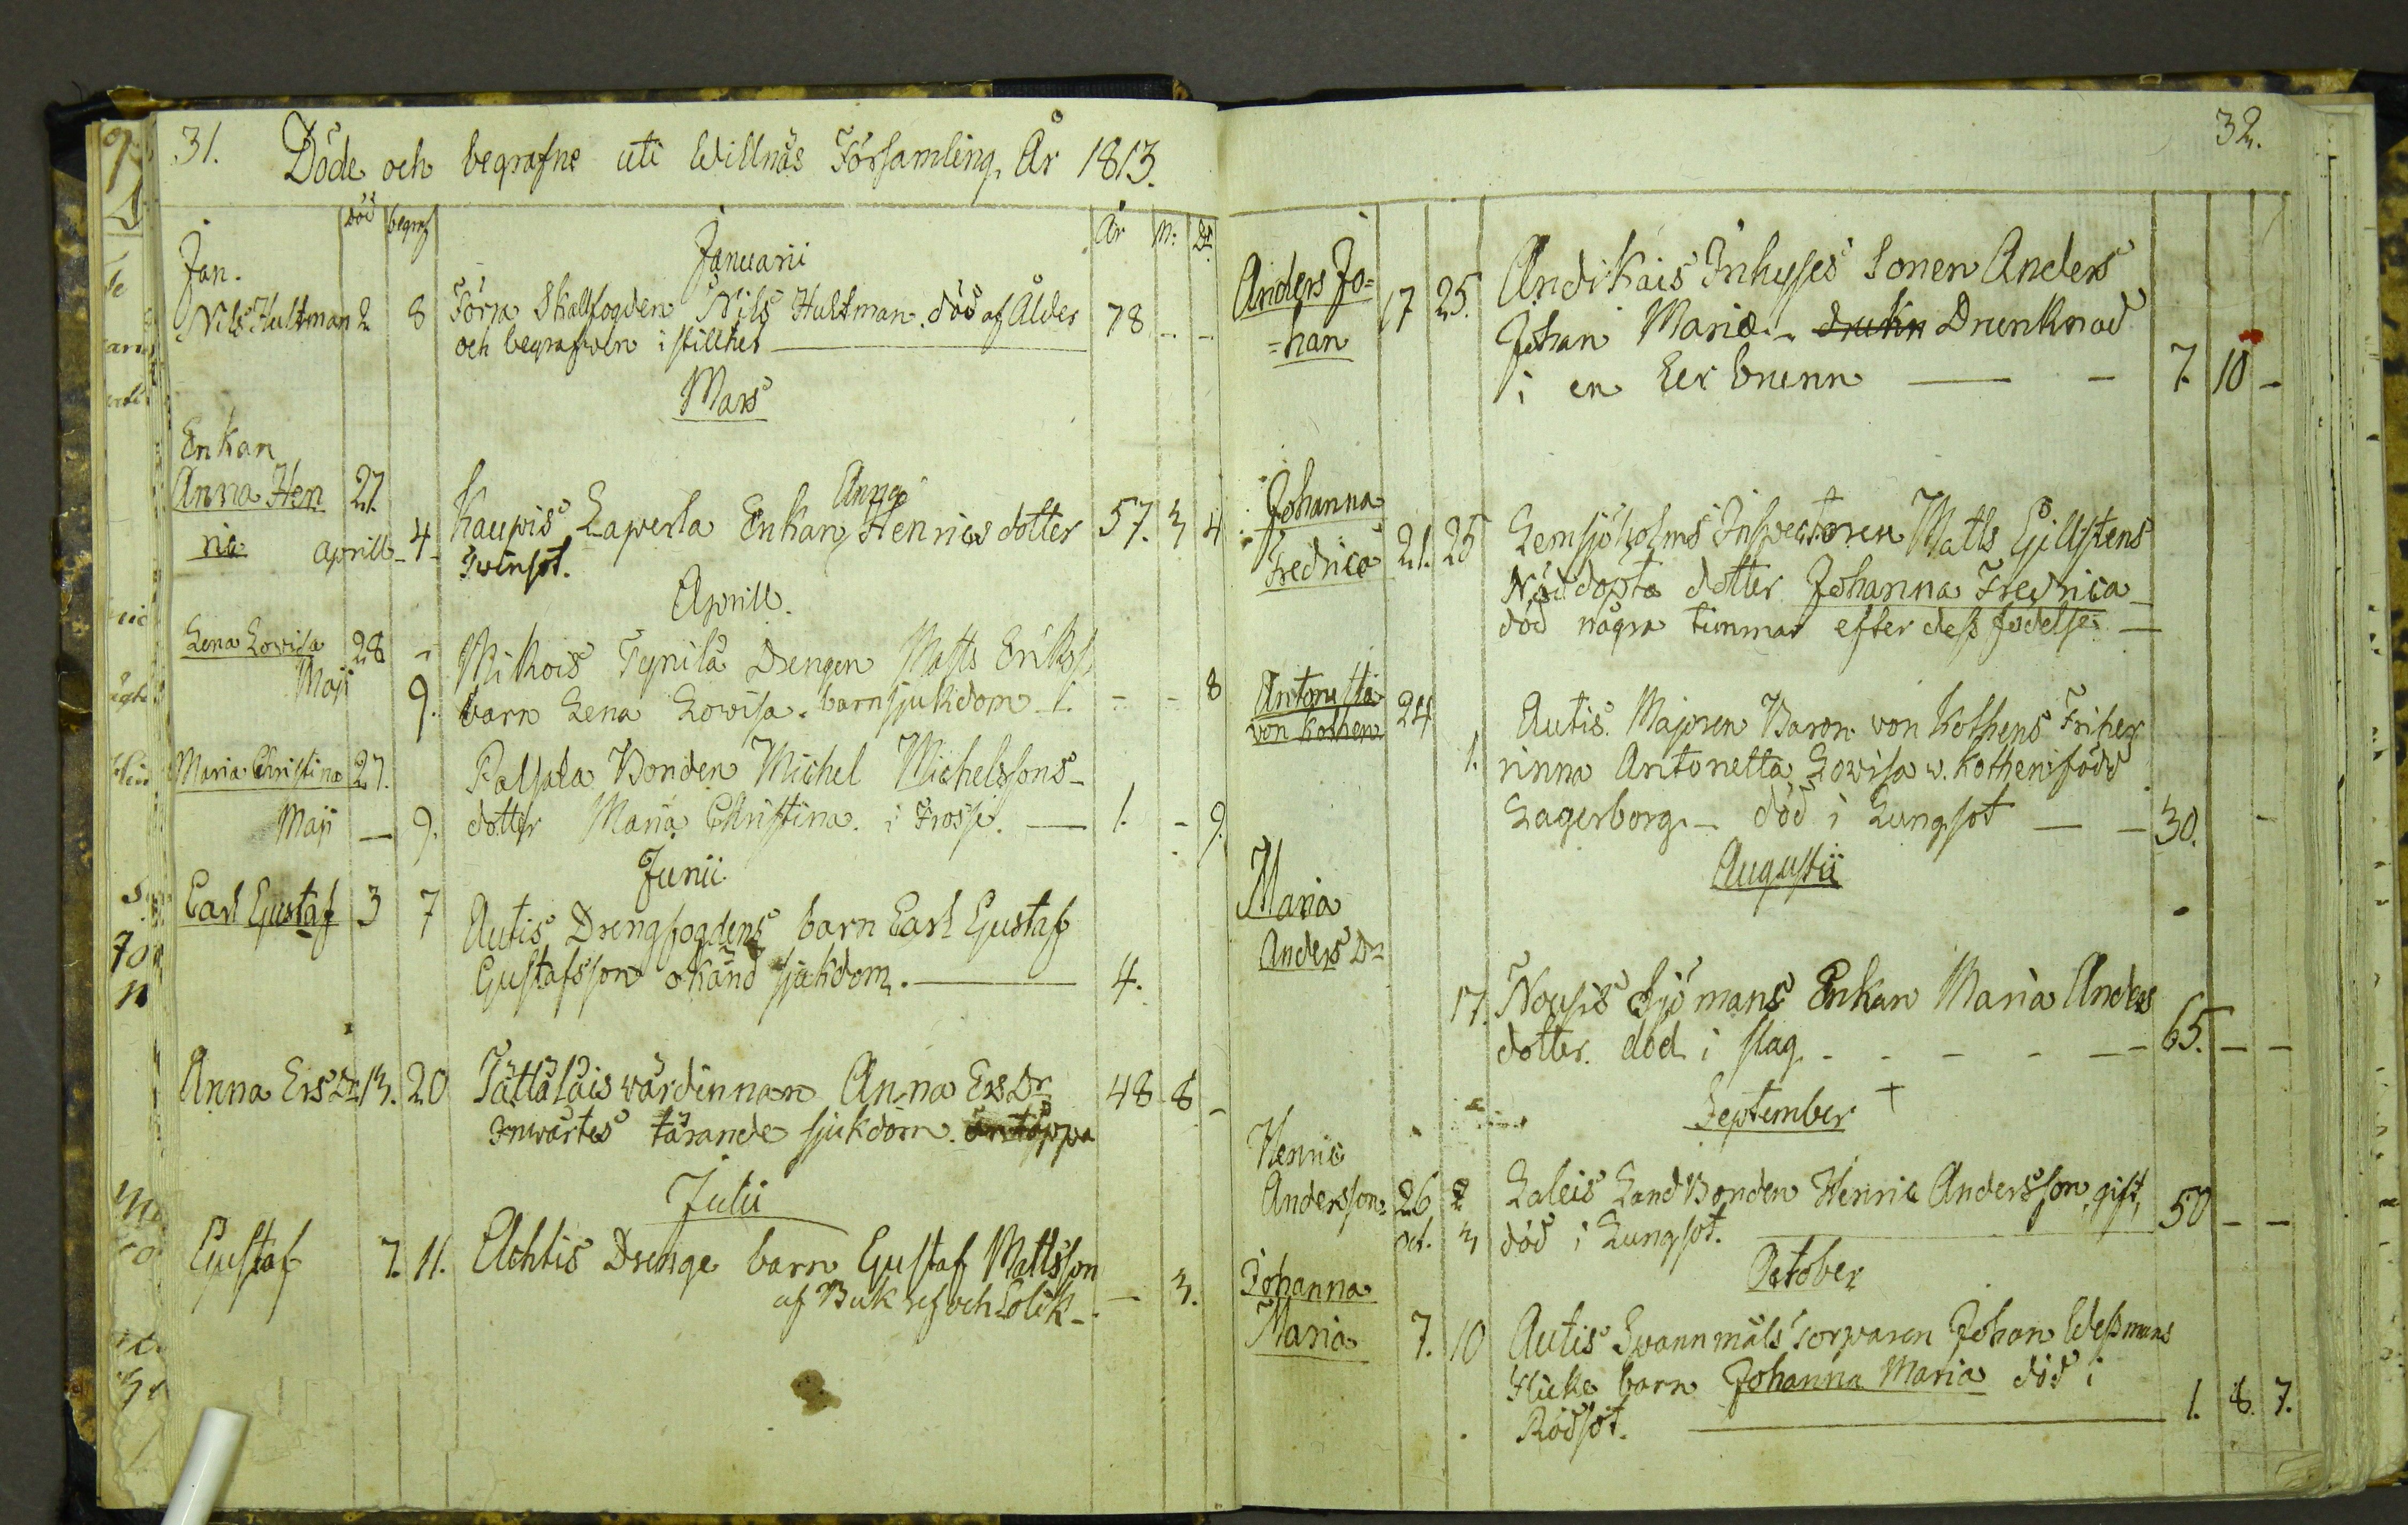 31. Döde och begrafne uti Willnäs Församling. År 1813.
död begraf År M: D.
Jan. Januarii
Nils Hultman 2 8 Förra Skallfogden Nils Hultman. död af Ålder 78 - -
och begrafven i stillhet
Mars
Enkan
Anna Hen 27. Anna
ric Aprill - 4 - Kaupis Laperla Enkan Henrics dotter 57. 3 4
Twinsot.
Aprill.
Lena Lovisa 28 - Mikois Tynilä Drengen Matts Eriks
Maji 9. barn Lena Lovisa. barnsjukdom 1. - - 8
Maria Christina 27. Palsala Bonden Michel Michelssons
Maji - 9. dotter Maria Christina. i Trosse. 1. - 9.
Junii
Carl Gustaf 3 7 Autis Drengfogdens barn Carl Gustaf
Gustafsson okänd sjukdom. 4.
Anna Ers Dr 13. 20 Tättäläis värdinnan Anna Ers Dr 48 8 -
Invärtes tärande sjukdom.
Julii
Gustaf 7. 11. Achtis Drenge barn Gustaf Mattsson
af Buk ref och Kolik - - 3.
32.
Anders Jo= 17 25. Andikais Inhyses Sonen Anders
=han Johan Mariæ - drukn Drunknad
i en Ler brunn - 7. 10 -
Johanna
Fredrica 21. 25 Lemsjöholms Inspectoren Matts Gillstens
Nöddöpta dotter Johanna Fredrica
död några timmar efter dess födelse
Antonetta 24
von Kothen 1. Autis. Majoren Baron von Kothens Friher
rinna Antonetta Lovisa v. Kothen född
Lagerborg - död i Lungsot - - 30. -
Augustii
Maria
Anders Dr
17. Nousis Sjömans Enkan Maria Anders
dotter. död i slag - - - - - 65. - -
September +
Henric
Andersson 26 Laleis Landbonden Henric Andersson, gift, 50 - -
Oct. 3 död i Lungsot.
October
Johanna
Maria 7. 10 Autis Swannmäls Torparen Johan Wessmans
Flicke barn Johanna Maria död i
Rödsot. 1. 8. 7.